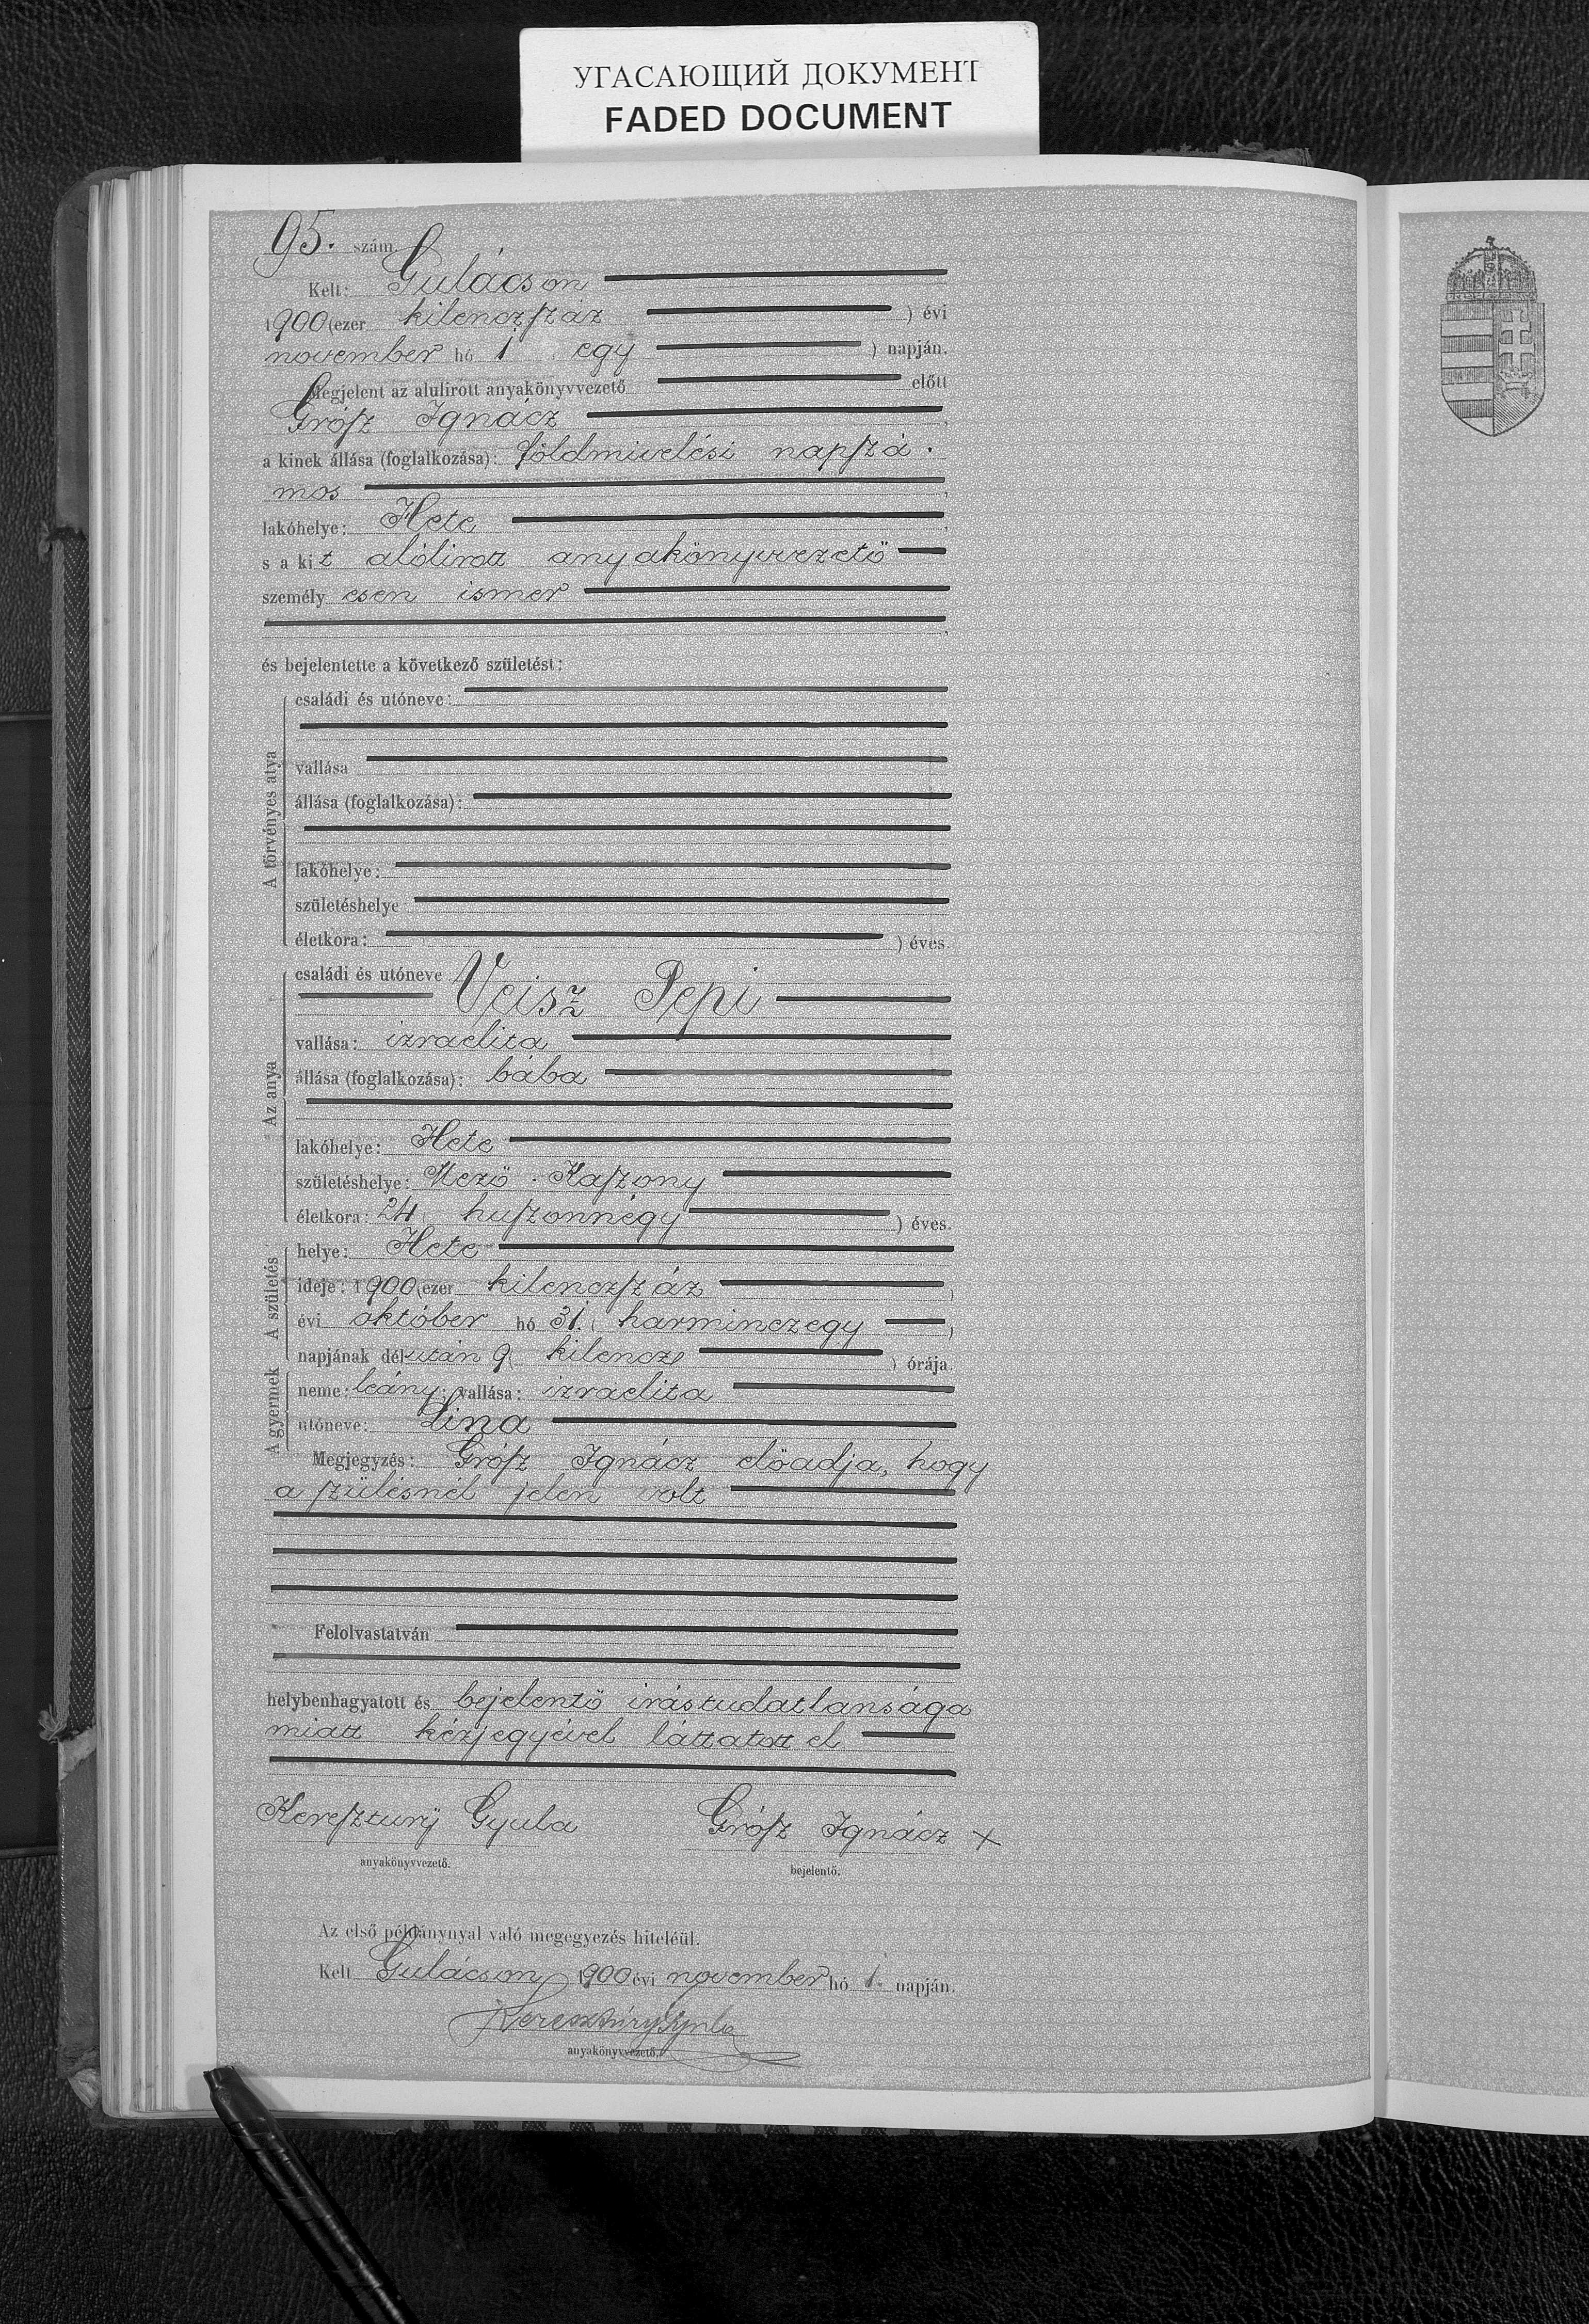 УГАСАЮЩИЙ ДОКУМЕНТ
FADED DOCUMENT
95. szám
Kelt: Gulácson
1900 (ezer kilenczszáz ) évi
november hó 1 egy ) napján.
Megjelent az alulirott anyakönyvvezető előtt
Grósz Ignácz
a kinek állása (foglalkozása): földmivelési napszá-
mos
lakóhelye: Hete
s a kit alólirott anyakönyvvezető
személyesen ismer
és bejelentette a következő születést:
A törvényes atya
családi és utóneve:
vallása
állása (foglalkozása):
lakóhelye:
születéshelye
életkora: ) éves.
Az anya
családi és utóneve
Veisz Pepi
vallása: izraelita
állása (foglalkozása): bába
lakóhelye: Hete
születéshelye: Mező-Kaszony
életkora: 24 ( huszonnégy ) éves.
A születés
helye: Hete
ideje: 1900 (ezer kilenczszáz )
évi október hó 31. ( harminczegy )
napjának délután 9 ( kilencz ) órája.
A gyermek
neme: leány; vallása: izraelita
utóneve: Lina
Megjegyzés: Grósz Ignácz előadja, hogy
a szülésnél jelen volt
Felolvastatván
helybenhagyatott és bejelentő irástudatlansága
miatt kézjegyével láttatott el.
Kereszturÿ Gyula Grósz Ignácz x
anyakönyvvezető. bejelentő.
Az első példánynyal való megegyezés hiteléül.
Kelt Gulácson, 1900 évi november hó 1. napján.
Keresztúry Gyula
anyakönyvvezető.